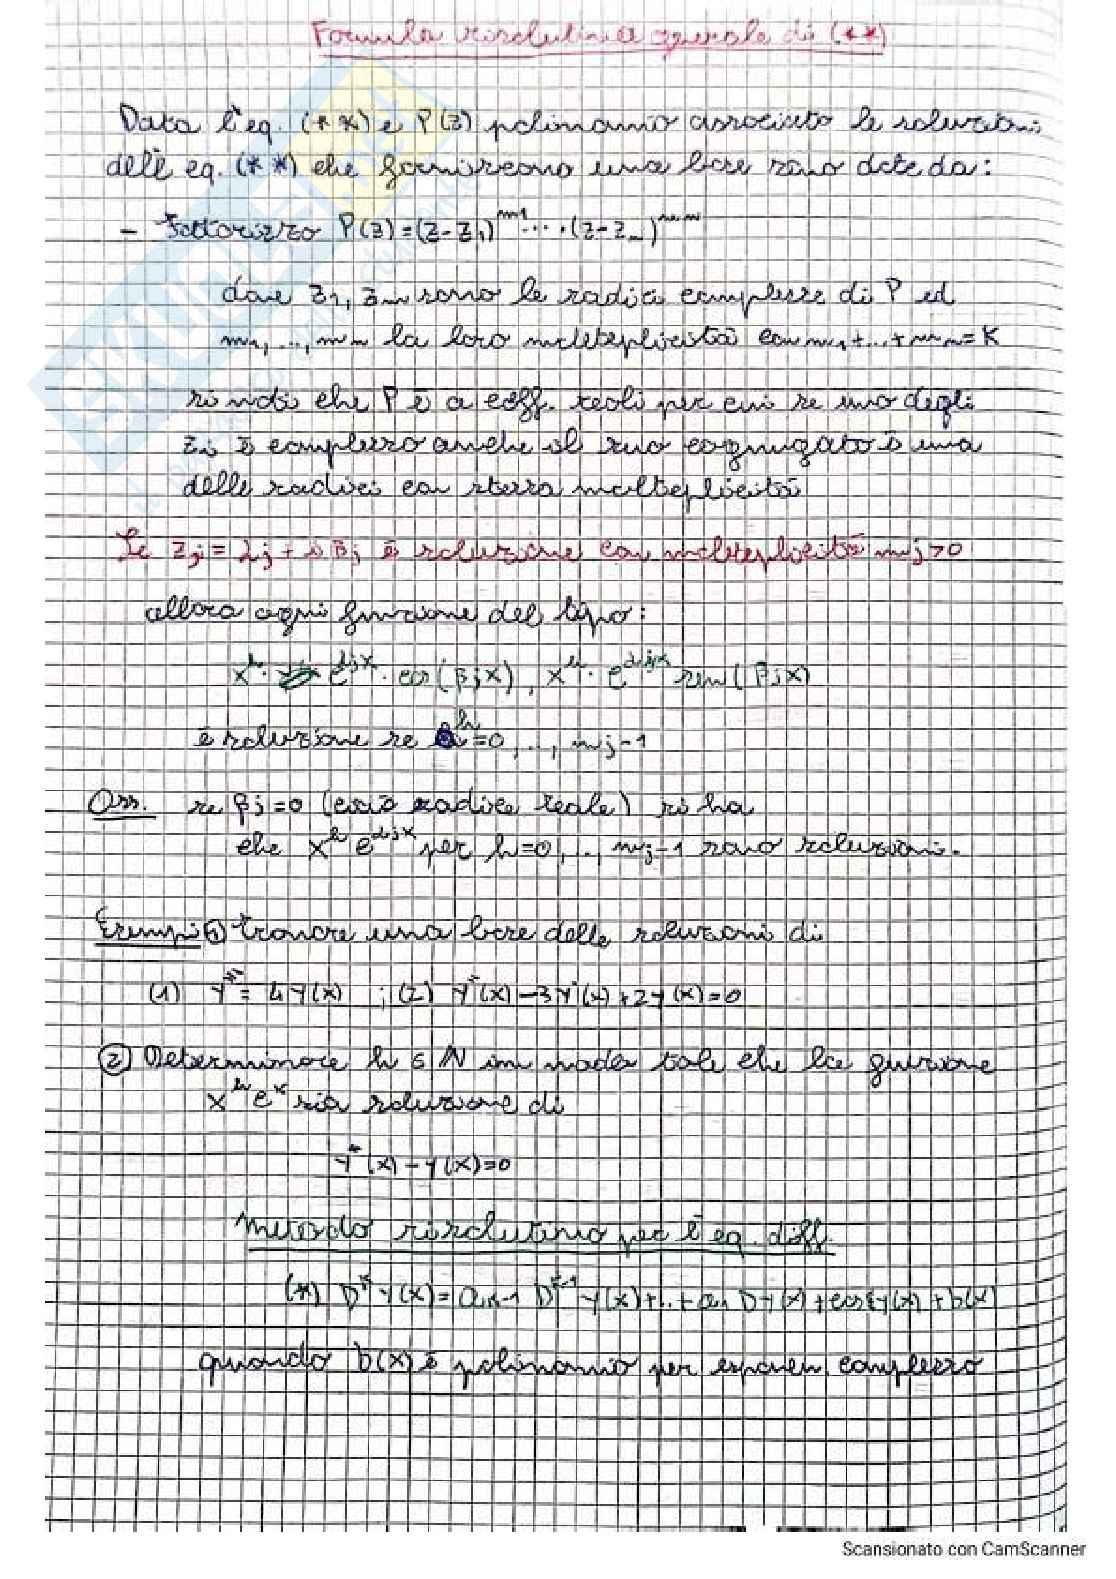 Formula risolutiva generale di (**)
Data l'eq. (**) e P(z) polinomio associato le soluzioni
dell'eq. (**) che forniscono una base sono date da:
- Fattorizzo P(z)=(z-z1)^m1 ... (z-zm)^mm
dove z1, zm sono le radici complesse di P ed
m1, ..., mm la loro molteplicità con m1+...+mm=K
si noti che P è a coeff. reali per cui se uno degli
zi è complesso anche il suo cognugato è una
delle radici con stessa molteplicità
Se zj = αj + iβj è soluzione con molteplicità mj>0
allora ogni funzione del tipo:
x^h · e^αjx · cos(βjx), x^h · e^αjx sen(βjx)
è soluzione se h=0, ..., mj-1
Oss. se βj=0 (cioè radice reale) si ha
che x^h e^αjx per h=0, .., mj-1 sono soluzioni.
Esempi ① trovare una base delle soluzioni di
(1) y'' = 4y(x) ; (2) y''(x)-3y'(x)+2y(x)=0
② Determinare h ∈ N in modo tale che la funzione
x^h e^x sia soluzione di
y''(x)-y(x)=0
Metodo risolutivo per l'eq. diff.
(*) D^k y(x)= ak-1 D^k-1 y(x)+..+a1 Dy(x)+ y(x)+b(x)
quando b(x) è polinomio per esponen. complesso
SKUOLA.net
Scansionato con CamScanner